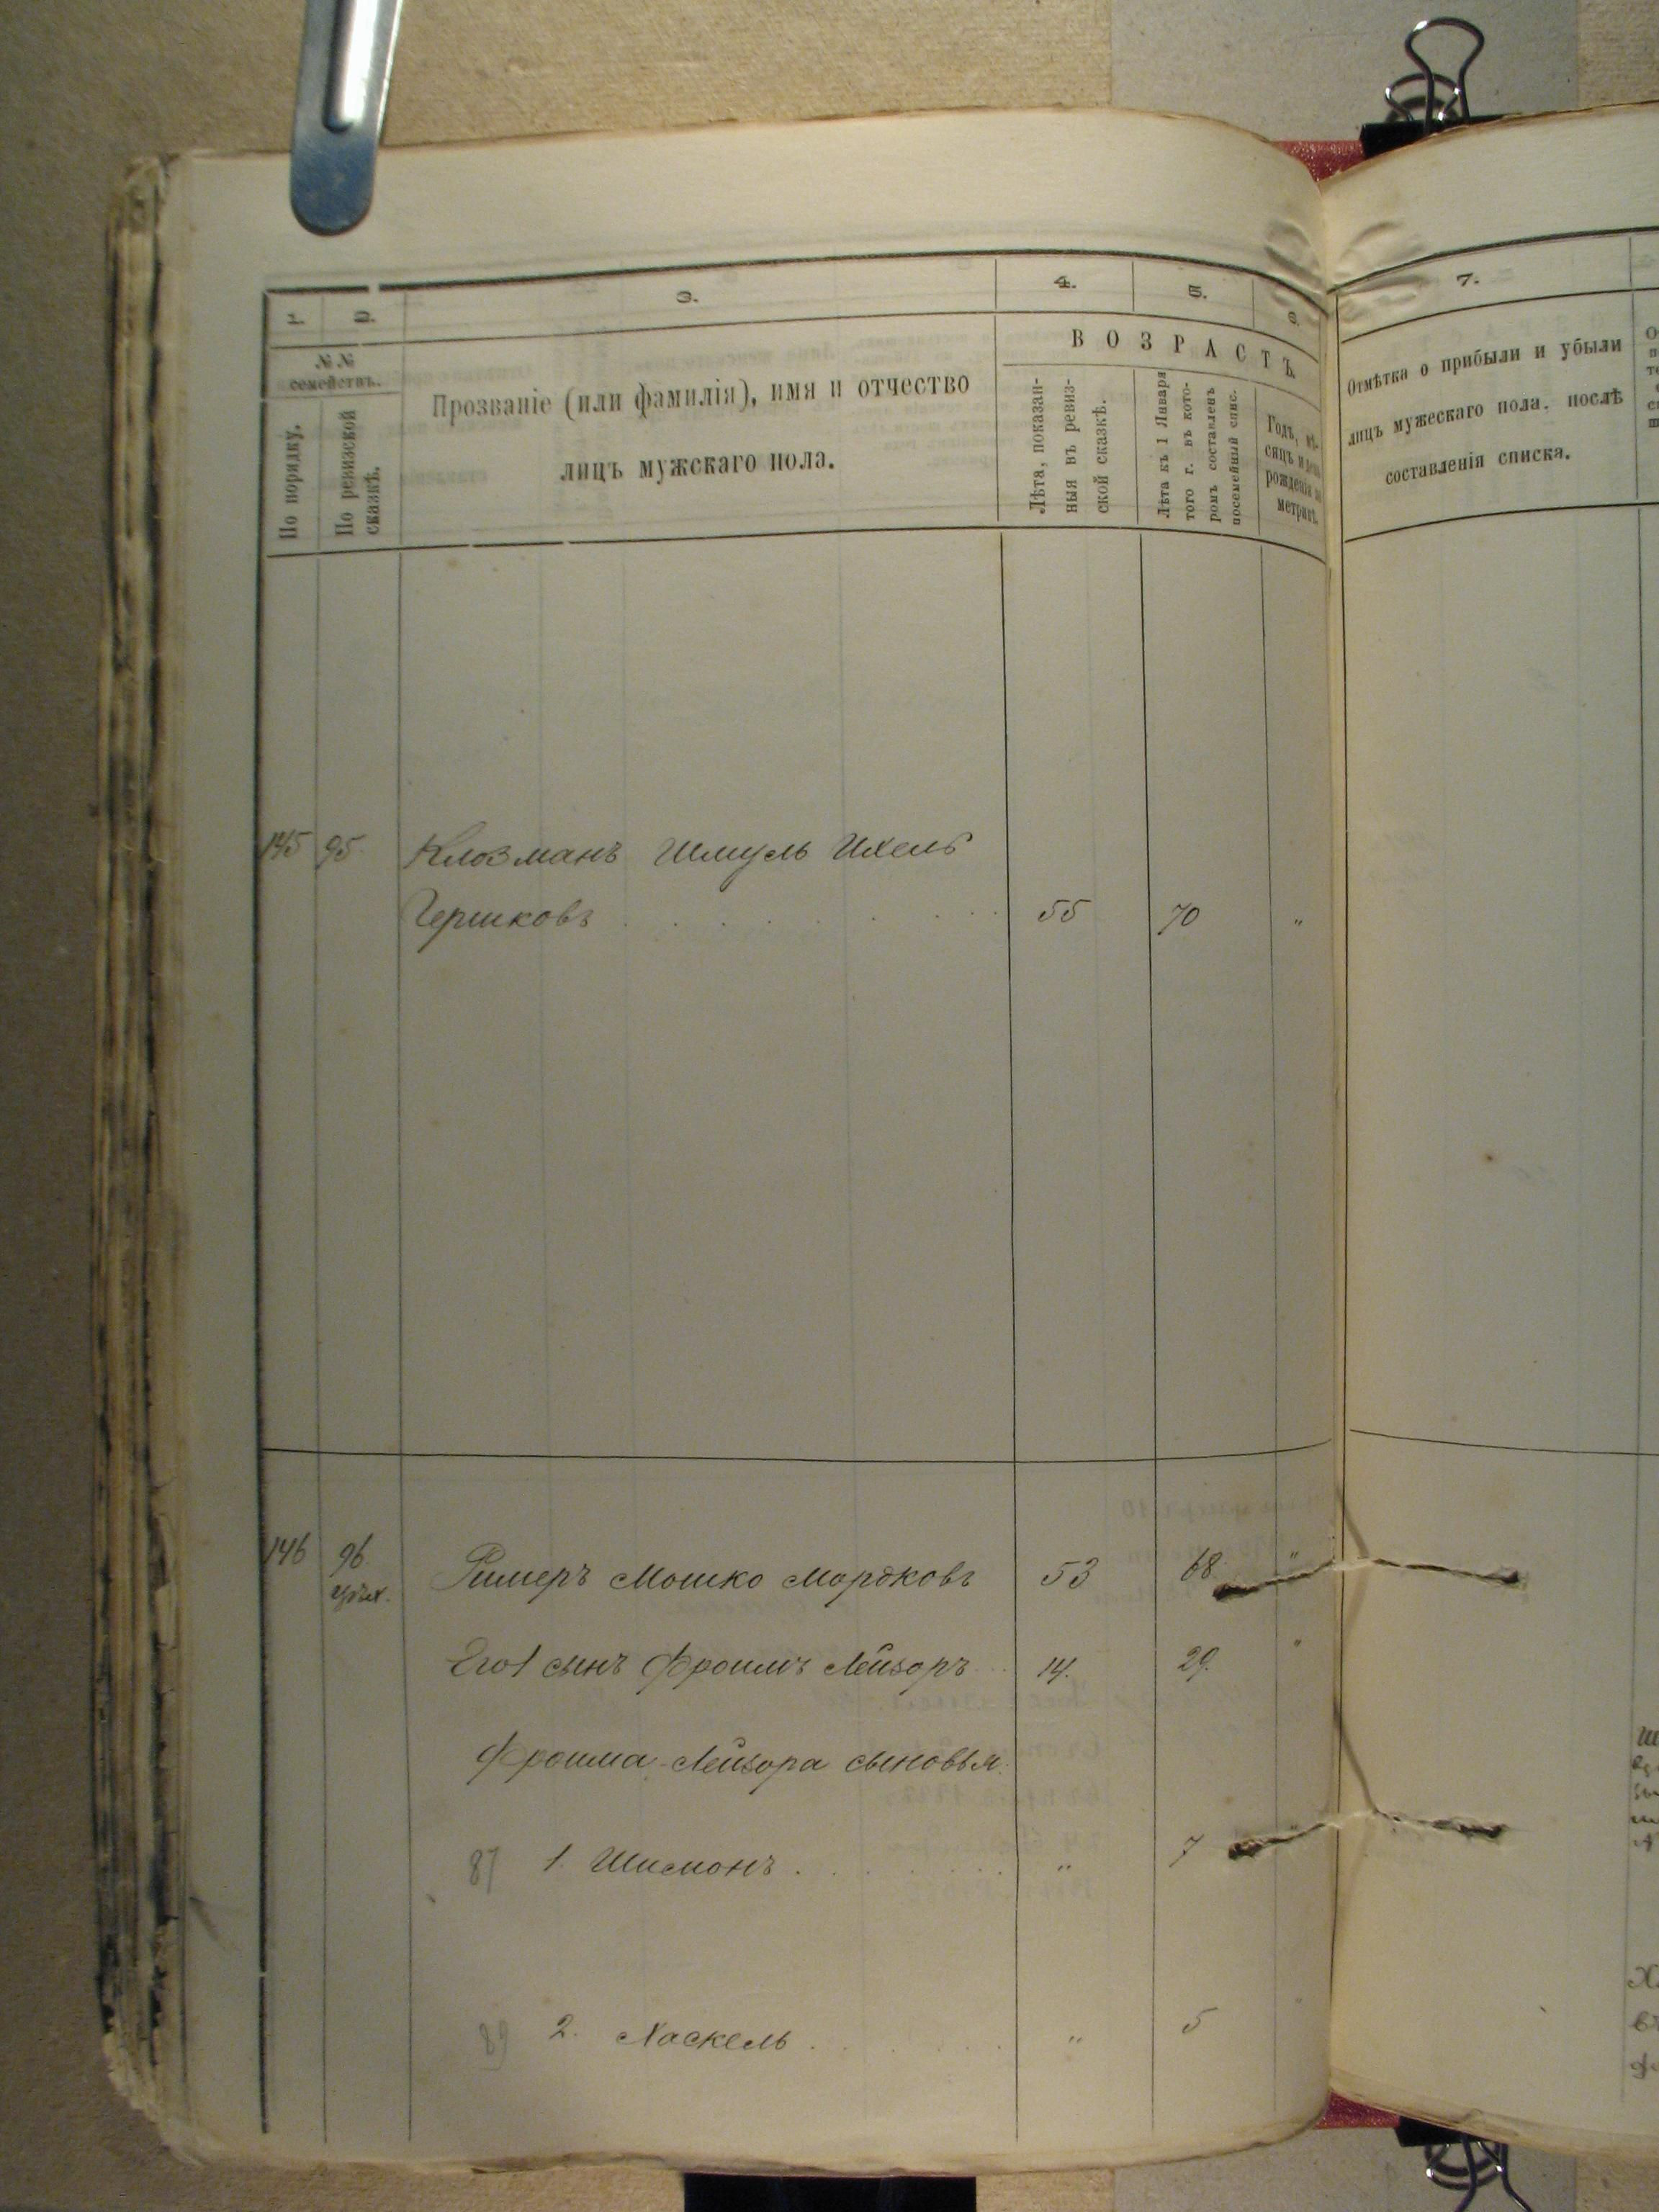 1.
2.
3.
4.
5.
6.
7.
№ №
семействъ.
По порядку.
По ревизской
сказкѣ.
Прозваніе (или фамилія), имя и отчество
лицъ мужскаго пола.
ВОЗРАСТЪ
Лѣта, показан-
ныя въ ревиз-
ской сказкѣ.
Лѣта къ 1 Января
того г. въ кото-
ромъ составленъ
посемейный спис.
Годъ, мѣ-
сяцъ и день
рожденія по
метрикѣ.
Отмѣтка о прибыли и убыли
лицъ мужескаго пола, послѣ
составленія списка.
145 95 Клозманъ Шмуль Ихель
Гершковъ . . . . . . . 55 70 "
146 96 Ришеръ Мошко Мордковъ 53 68 "
Его 1 сынъ Фроимъ Лейзоръ 14. 29. "
Фроима-Лейзора сыновья:
87 1. Шимонъ . . . . . . " 7 "
89 2. Хаскель . . . . . . " 5 "